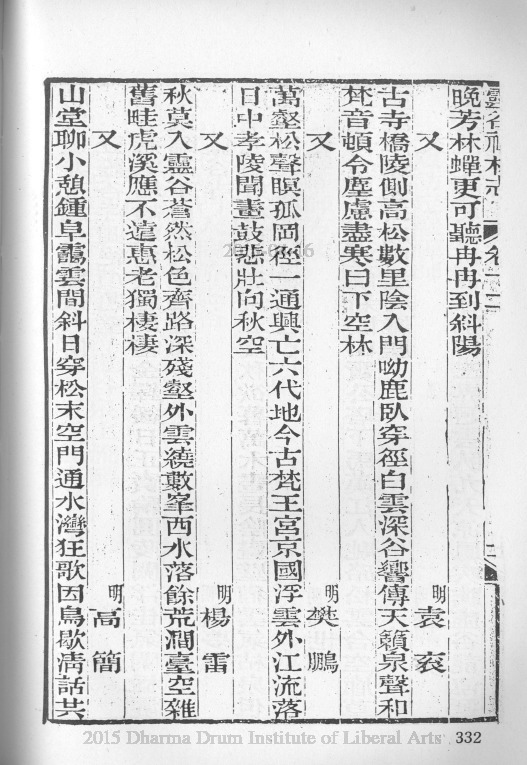 靈谷禪林志 卷十二 二
晚芳林蟬更可聽冉冉到斜陽
又 明 袁袞
古寺橋陵側高松數里陰入門呦鹿臥穿徑白雲深谷響傳天籟泉聲和
梵音頓令塵慮盡寒日下空林
又 明 樊鵬
萬壑松聲暝孤岡徑一通興亡六代地今古梵王宮京國浮雲外江流落
日中孝陵聞畫鼓悲壯向秋空
又 明 楊雷
秋莫入靈谷蒼然松色齊路深殘壑外雲繞數峯西水落餘荒澗臺空雜
舊畦虎溪應不遠惠老獨棲棲
又 明 高簡
山堂聊小憩鍾阜靄雲間斜日穿松末空門通水灣狂歌因鳥歇清話共
332
2015 Dharma Drum Institute of Liberal Arts